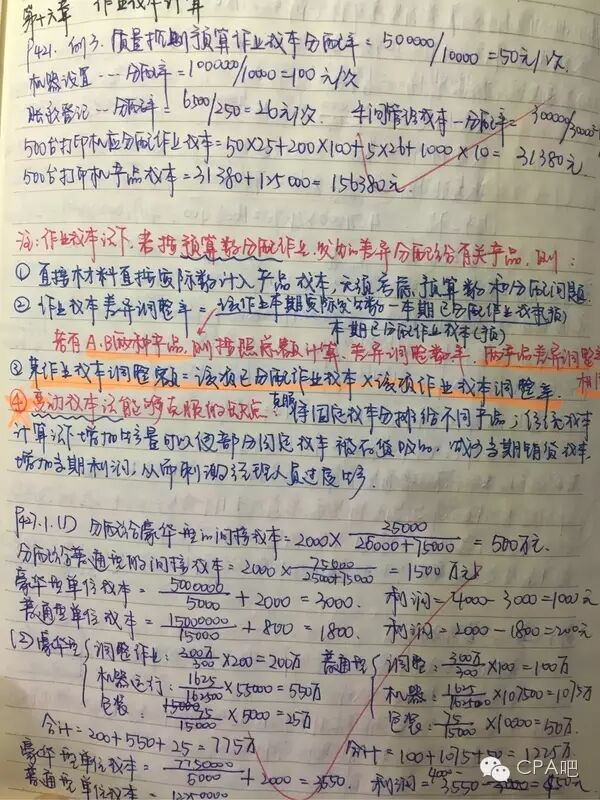 第十六章 作业成本计算
P421. 例3. 质量抽测预算作业成本分配率 = 500000/10000 = 50元/次.
机器设置 … 分配率 = 1000000/10000 = 100元/次
账款登记 … 分配率 = 6500/250 = 26元/次. 车间管理成本 … 分配率 = 300000/30000 =
500台打印机应分配作业成本 = 50×25 + 200×100 + 5×26 + 1000×10 = 31380元.
500台打印机产品成本 = 31380 + 125000 = 156380元.
注: 作业成本法下, 若按预算数分配作业, 发生的差异分配给有关产品, 则:
① 直接材料直接按实际数计入产品成本, 无须考虑预算数和分配问题.
② 作业成本差异调整率 = 该作业本期实际发生数 - 本期已分配作业成本(预)
本期已分配作业成本(预)
若有A、B两种产品, 则按照总额计算差异调整率, 两产品差异调整率
相同
③ 某作业成本调整额 = 该项已分配作业成本 × 该项作业成本调整率.
④ 变动成本法能够克服的缺点: 将固定成本分摊给不同产品; 传统成本
计算法下增加产量可以使部分固定成本被存货吸收, 减少当期销货成本,
增加当期利润, 从而刺激经理人员过度生产.
P427.1.(1) 分配给豪华型的间接成本 = 2000 × 25000/(25000+75000) = 500万元.
分配给普通型的间接成本 = 2000 × 75000/(25000+75000) = 1500万元
豪华型单位成本 = 5000000/5000 + 2000 = 3000. 利润 = 4000 - 3000 = 1000元
普通型单位成本 = 15000000/15000 + 800 = 1800. 利润 = 2000 - 1800 = 200元
(2) 豪华型 { 调整作业: 300万/300 × 200 = 200万 普通型 { 调整: 300万/300 × 100 = 100万
机器运行: 1625/162500 × 55000 = 550万 机器: 1625/162500 × 107500 = 1075万
包装: 75/15000 × 5000 = 25万 包装: 75/15000 × 10000 = 50万.
合计 = 200 + 550 + 25 = 775万 合计 = 100 + 1075 + 50 = 1225万.
豪华型单位成本 = 7750000/5000 + 2000 = 3550. 利润 = 4000 - 3550 = 450元
普通型单位成本 =
CPA吧